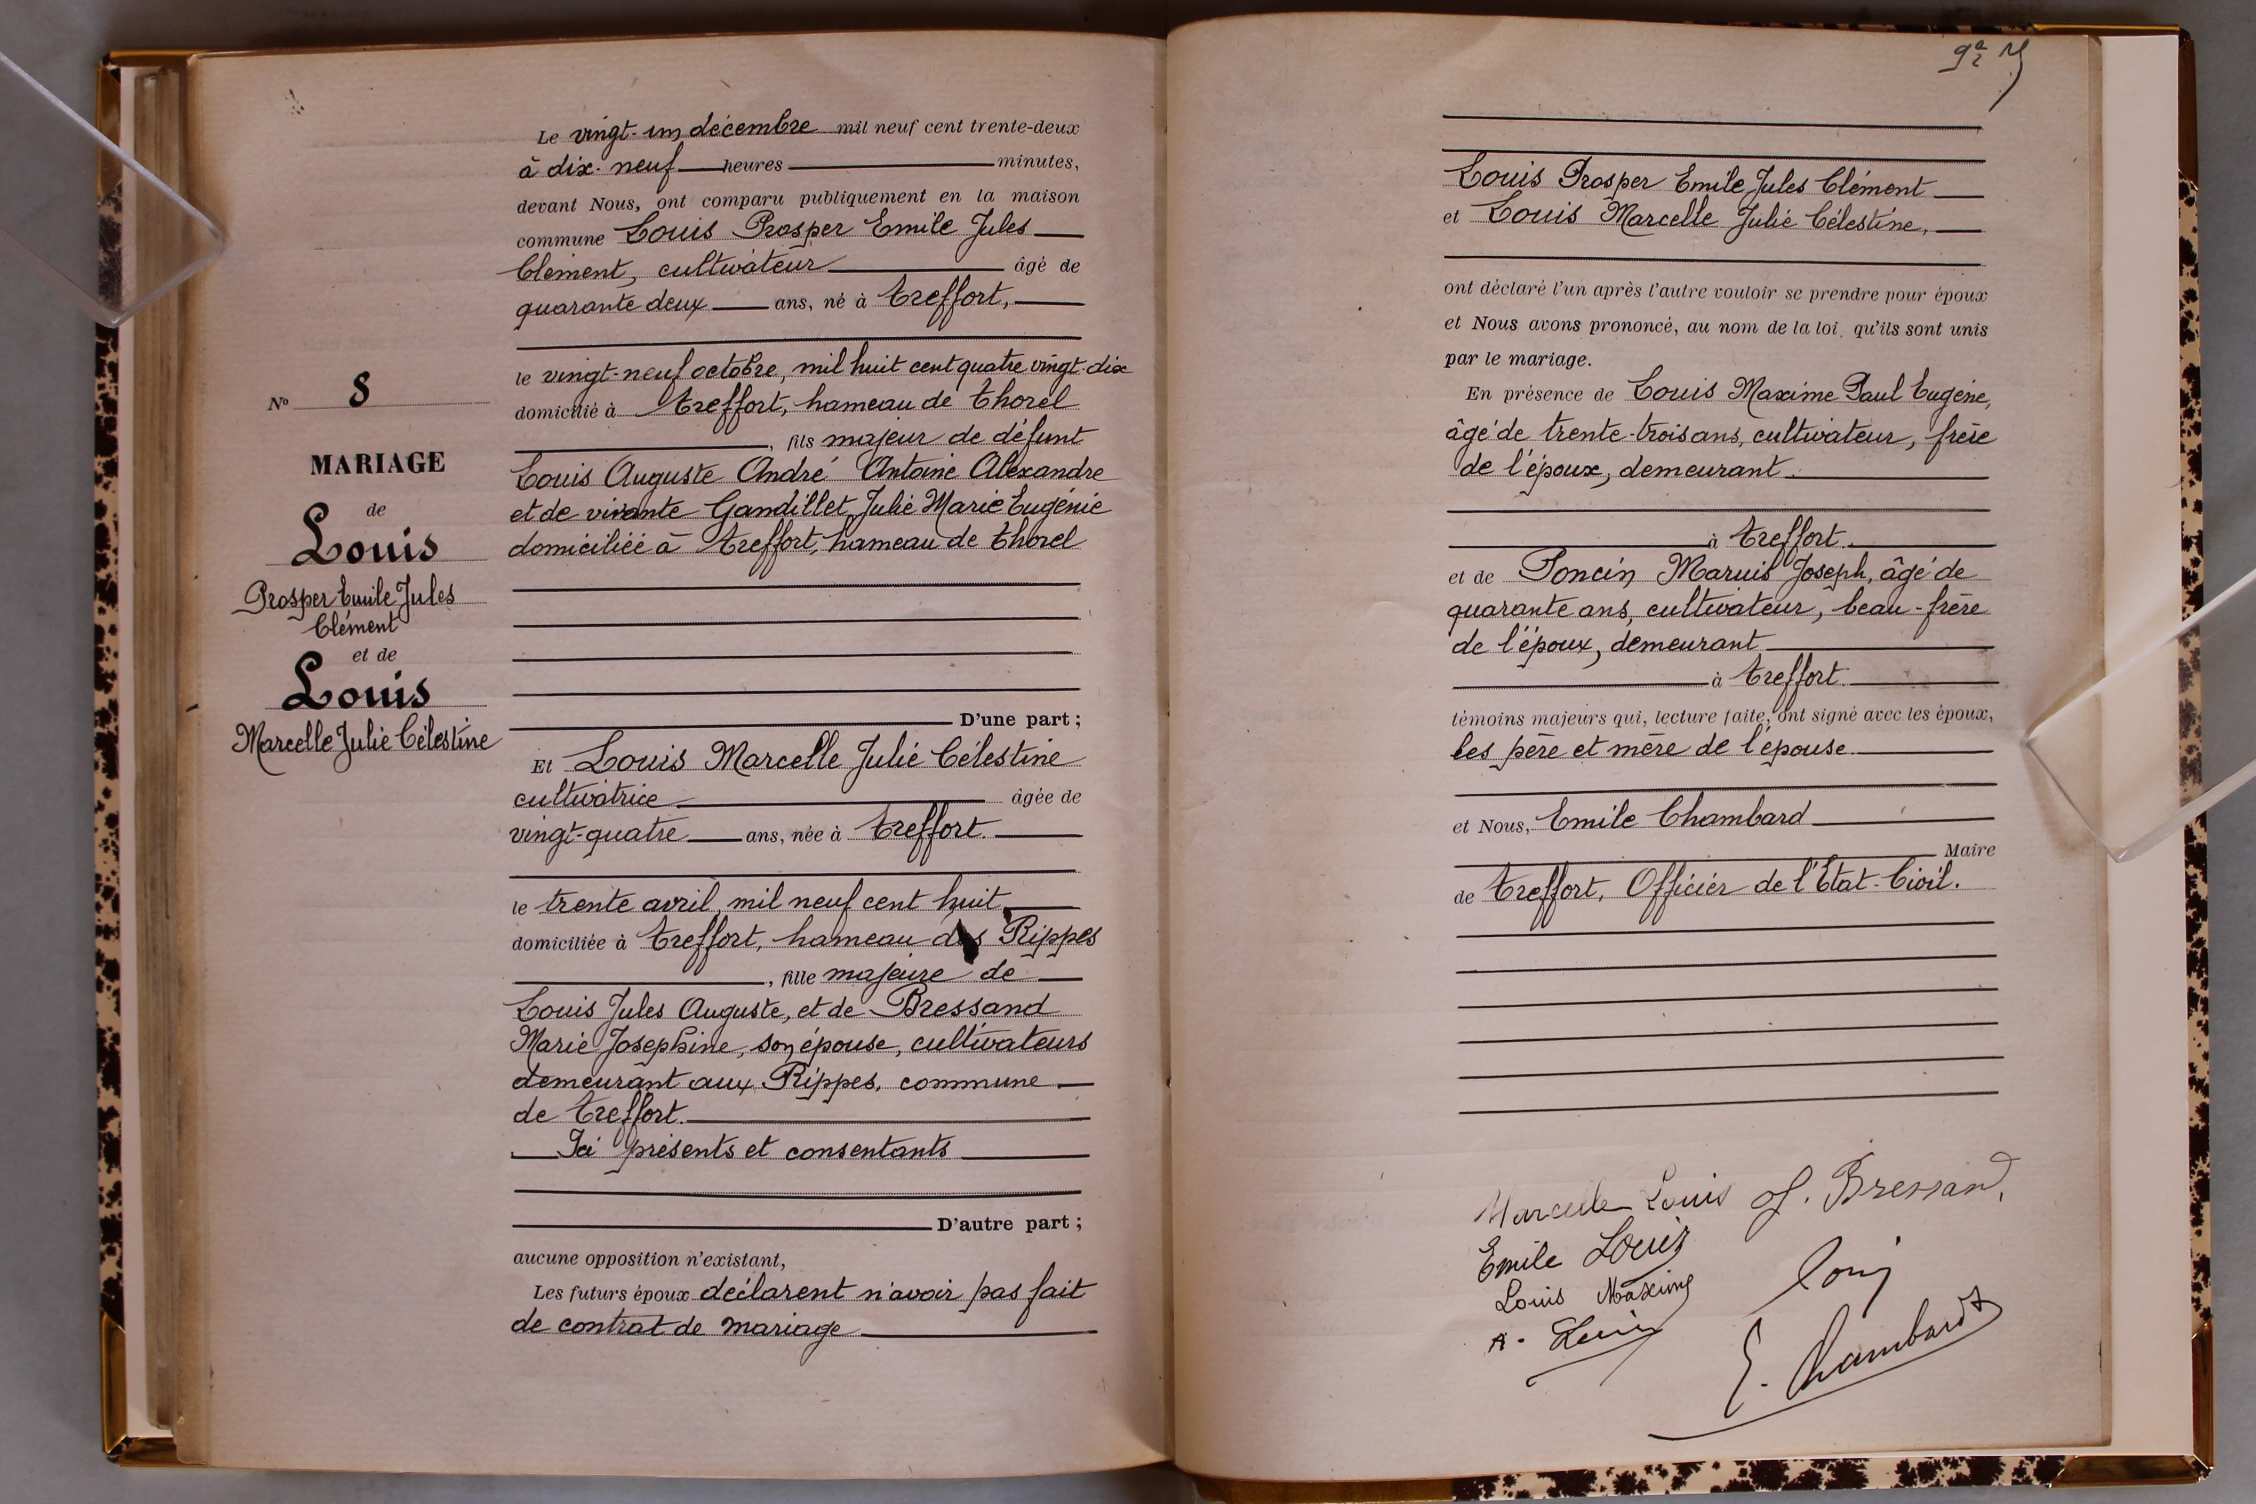 Le vingt-un décembre mil neuf cent trente-deux
à dix-neuf heures minutes,
devant Nous, ont comparu publiquement en la maison
commune Louis Prosper Emile Jules
Clément, cultivateur âgé de
quarante deux ans, né à Treffort,
le vingt-neuf octobre, mil huit cent quatre vingt-dix
domicilié à Treffort, hameau de Thorel
, fils majeur de défunt
Louis Auguste André Antoine Alexandre
et de vivante Gandillet Julie Marie Eugénie
domiciliée à Treffort, hameau de Thorel
D'une part ;
Et Louis Marcelle Julie Célestine
cultivatrice âgée de
vingt-quatre ans, née à Treffort.
le trente avril, mil neuf cent huit
domiciliée à Treffort, hameau des Rippes
, fille majeure de
Louis Jules Auguste, et de Bressand
Marie Josephine, son épouse, cultivateurs
demeurant aux Rippes, commune
de Treffort.
Ici présents et consentants
D'autre part ;
aucune opposition n'existant,
Les futurs époux déclarent n'avoir pas fait
de contrat de mariage
No 8
MARIAGE
de
Louis
Prosper Emile Jules
Clément
et de
Louis
Marcelle Julie Célestine
Louis Prosper Emile Jules Clément
et Louis Marcelle Julie Célestine,
ont déclaré l'un après l'autre vouloir se prendre pour époux
et Nous avons prononcé, au nom de la loi, qu'ils sont unis
par le mariage.
En présence de Louis Maxime Paul Eugène,
âgé de trente-trois ans, cultivateur, frère
de l'époux, demeurant
à Treffort.
et de Poncin Maruis Joseph, âgé de
quarante ans, cultivateur, beau-frère
de l'époux, demeurant
à Treffort.
témoins majeurs qui, lecture faite, ont signé avec les époux,
les père et mère de l'épouse
et Nous, Emile Chambard
Maire
de Treffort, Officier de l'Etat-Civil.
Marcelle Louis J. Bressand,
Emile Louis
Louis Maxime
Louis
E. Chambard